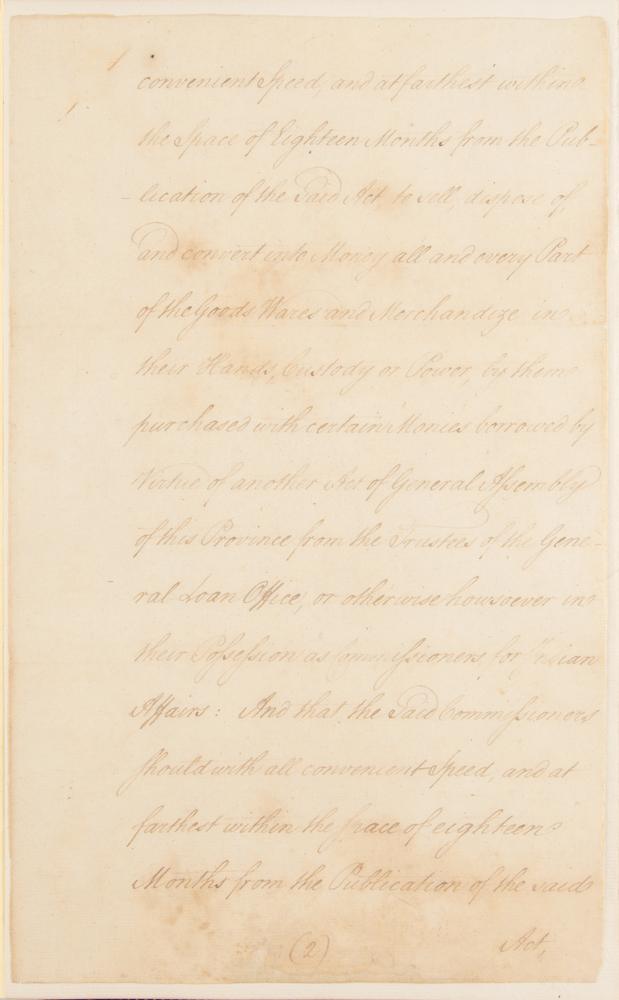 convenient Speed, and at farthest within
the Space of Eighteen Months from the Pub-
-lication of the Said Act, to sell, dispose of,
and convert into Money all and every Part
of the Goods Wares and Merchandize in
their Hands, Custody or Power, by them
purchased with certain Monies borrowed by
Virtue of another Act of General Assembly
of this Province from the Trustees of the Gene-
ral Loan Office, or otherwise howsoever in
their Possession as Commissioners for Indian
Affairs: And that the Said Commissioners
should with all convenient Speed, and at
farthest within the space of eighteen
Months from the Publication of the said
(2) Act,